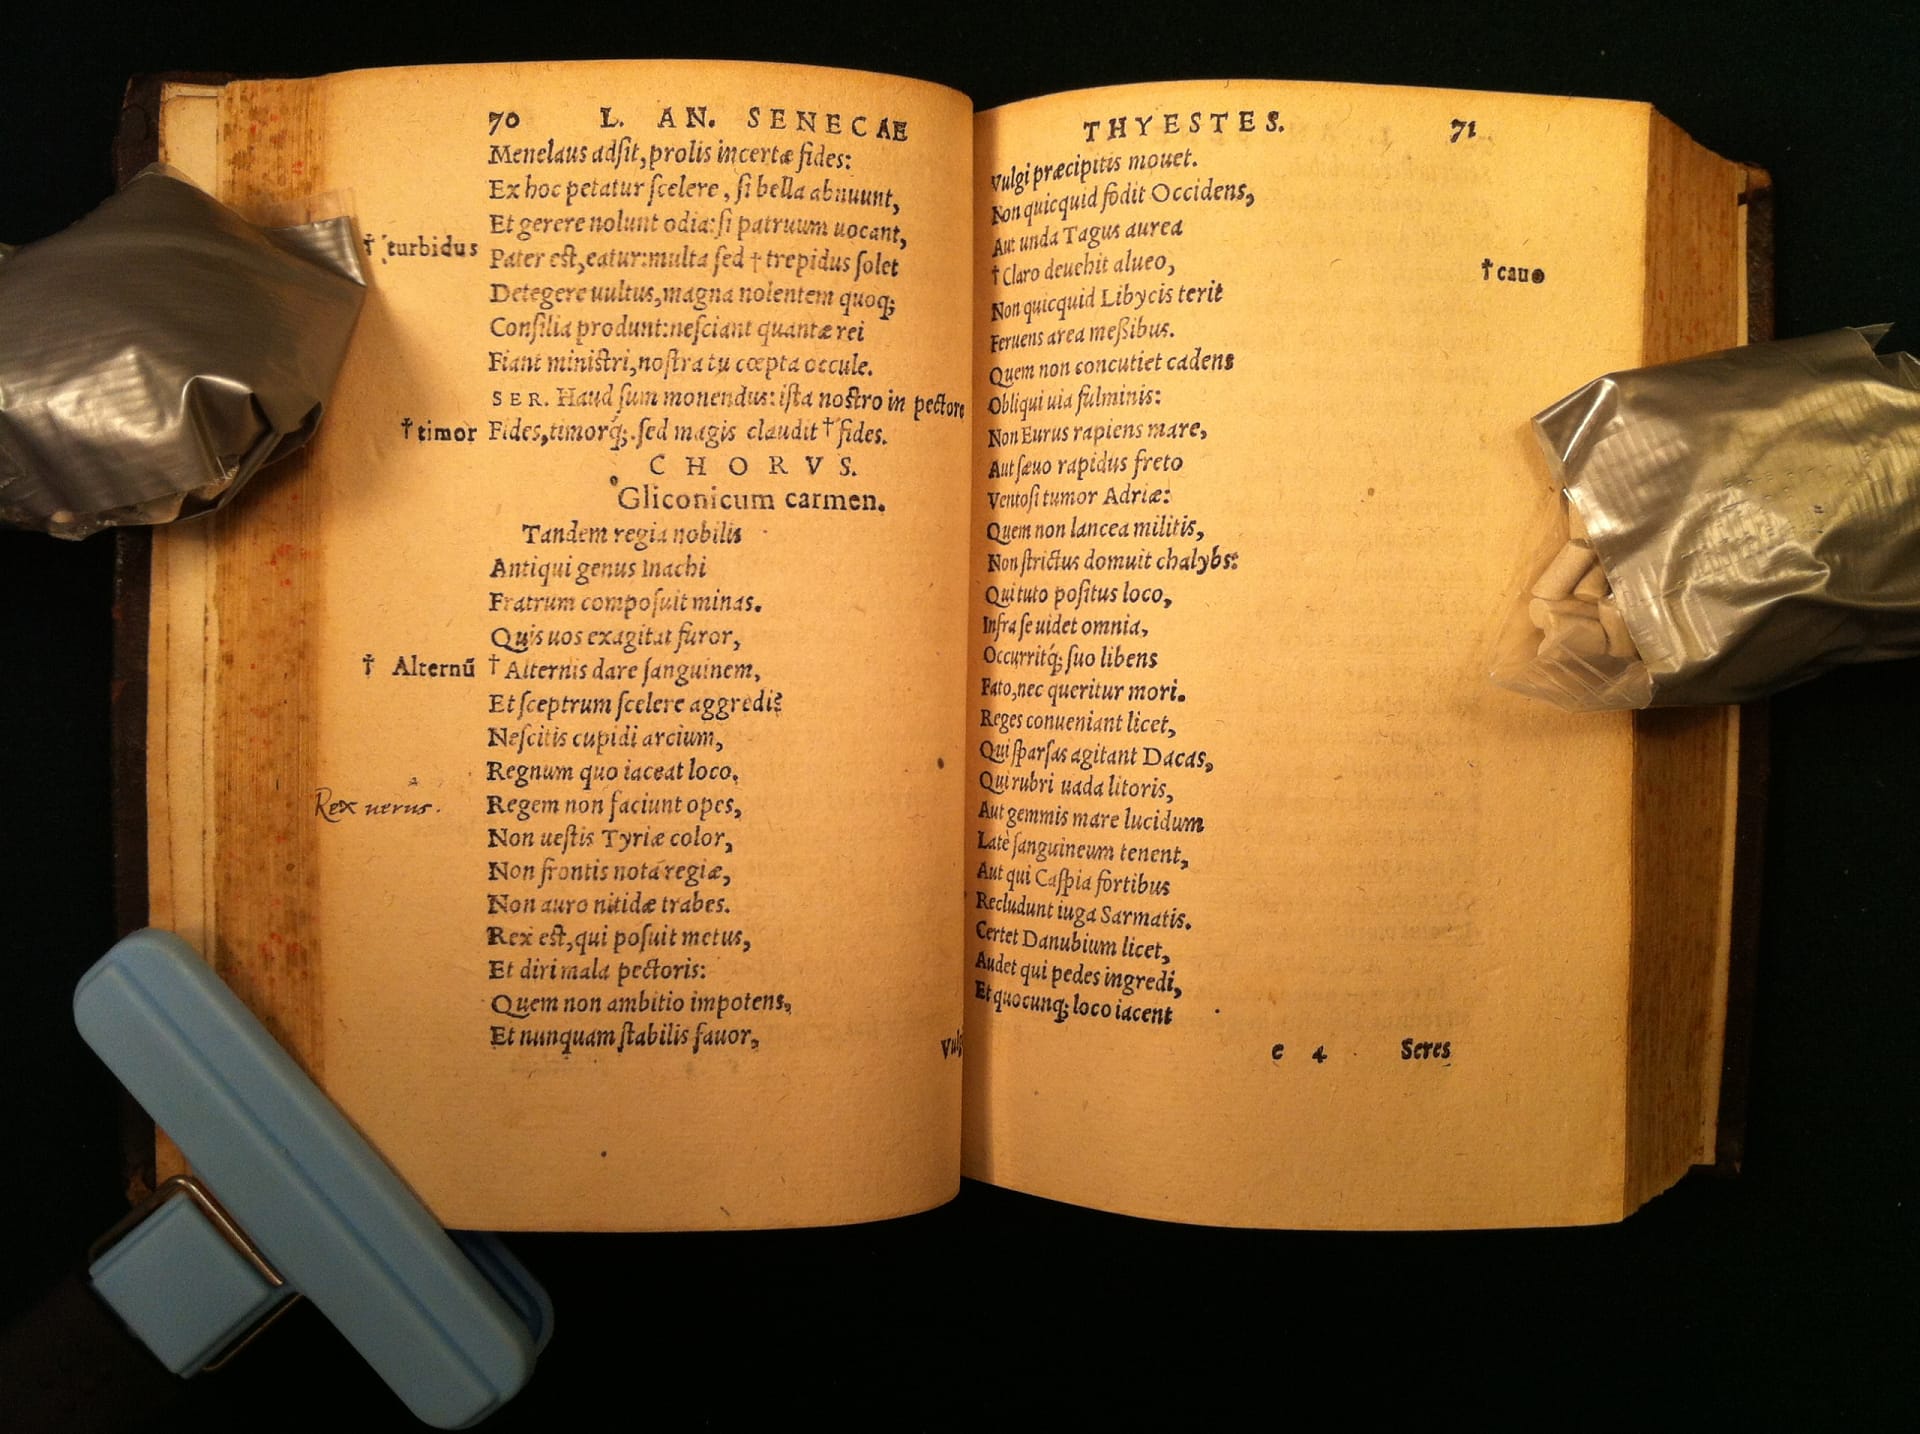 70 L. AN. SENECAE
Menelaus adſit, prolis incertæ fides:
Ex hoc petatur ſcelere, ſi bella abnuunt,
Et gerere nolunt odia: ſi patruum uocant,
† turbidus Pater eſt, eatur: multa ſed † trepidus ſolet
Detegere uultus, magna nolentem quoq;
Conſilia produnt: neſciant quantæ rei
Fiant miniſtri, noſtra tu cœpta occule.
SER. Haud ſum monendus: iſta noſtro in pectore
† timor Fides, timorq́;. ſed magis claudit † fides.
CHORVS.
Gliconicum carmen.
Tandem regia nobilis
Antiqui genus Inachi
Fratrum compoſuit minas.
Quis uos exagitat furor,
† Alternũ † Alternis dare ſanguinem,
Et ſceptrum ſcelere aggredi?
Neſcitis cupidi arcium,
Regnum quo iaceat loco.
Rex uerus. Regem non faciunt opes,
Non ueſtis Tyriæ color,
Non frontis nota regiæ,
Non auro nitidæ trabes.
Rex eſt, qui poſuit metus,
Et diri mala pectoris:
Quem non ambitio impotens,
Et nunquam ſtabilis fauor,
THYESTES. 71
Vulgi præcipitis mouet.
Non quicquid fodit Occidens,
Aut unda Tagus aurea
† Claro deuehit alueo, † cauo
Non quicquid Libycis terit
Feruens area meßibus.
Quem non concutiet cadens
Obliqui uia fulminis:
Non Eurus rapiens mare,
Aut ſæuo rapidus freto
Ventoſi tumor Adriæ:
Quem non lancea militis,
Non ſtrictus domuit chalybs:
Qui tuto poſitus loco,
Infra ſe uidet omnia,
Occurritq́; ſuo libens
Fato, nec queritur mori.
Reges conueniant licet,
Qui ſparſas agitant Dacas,
Qui rubri uada litoris,
Aut gemmis mare lucidum
Latè ſanguineum tenent,
Aut qui Caſpia fortibus
Recludunt iuga Sarmatis.
Certet Danubium licet,
Audet qui pedes ingredi,
Et quocunq; loco iacent
e 4 Seres